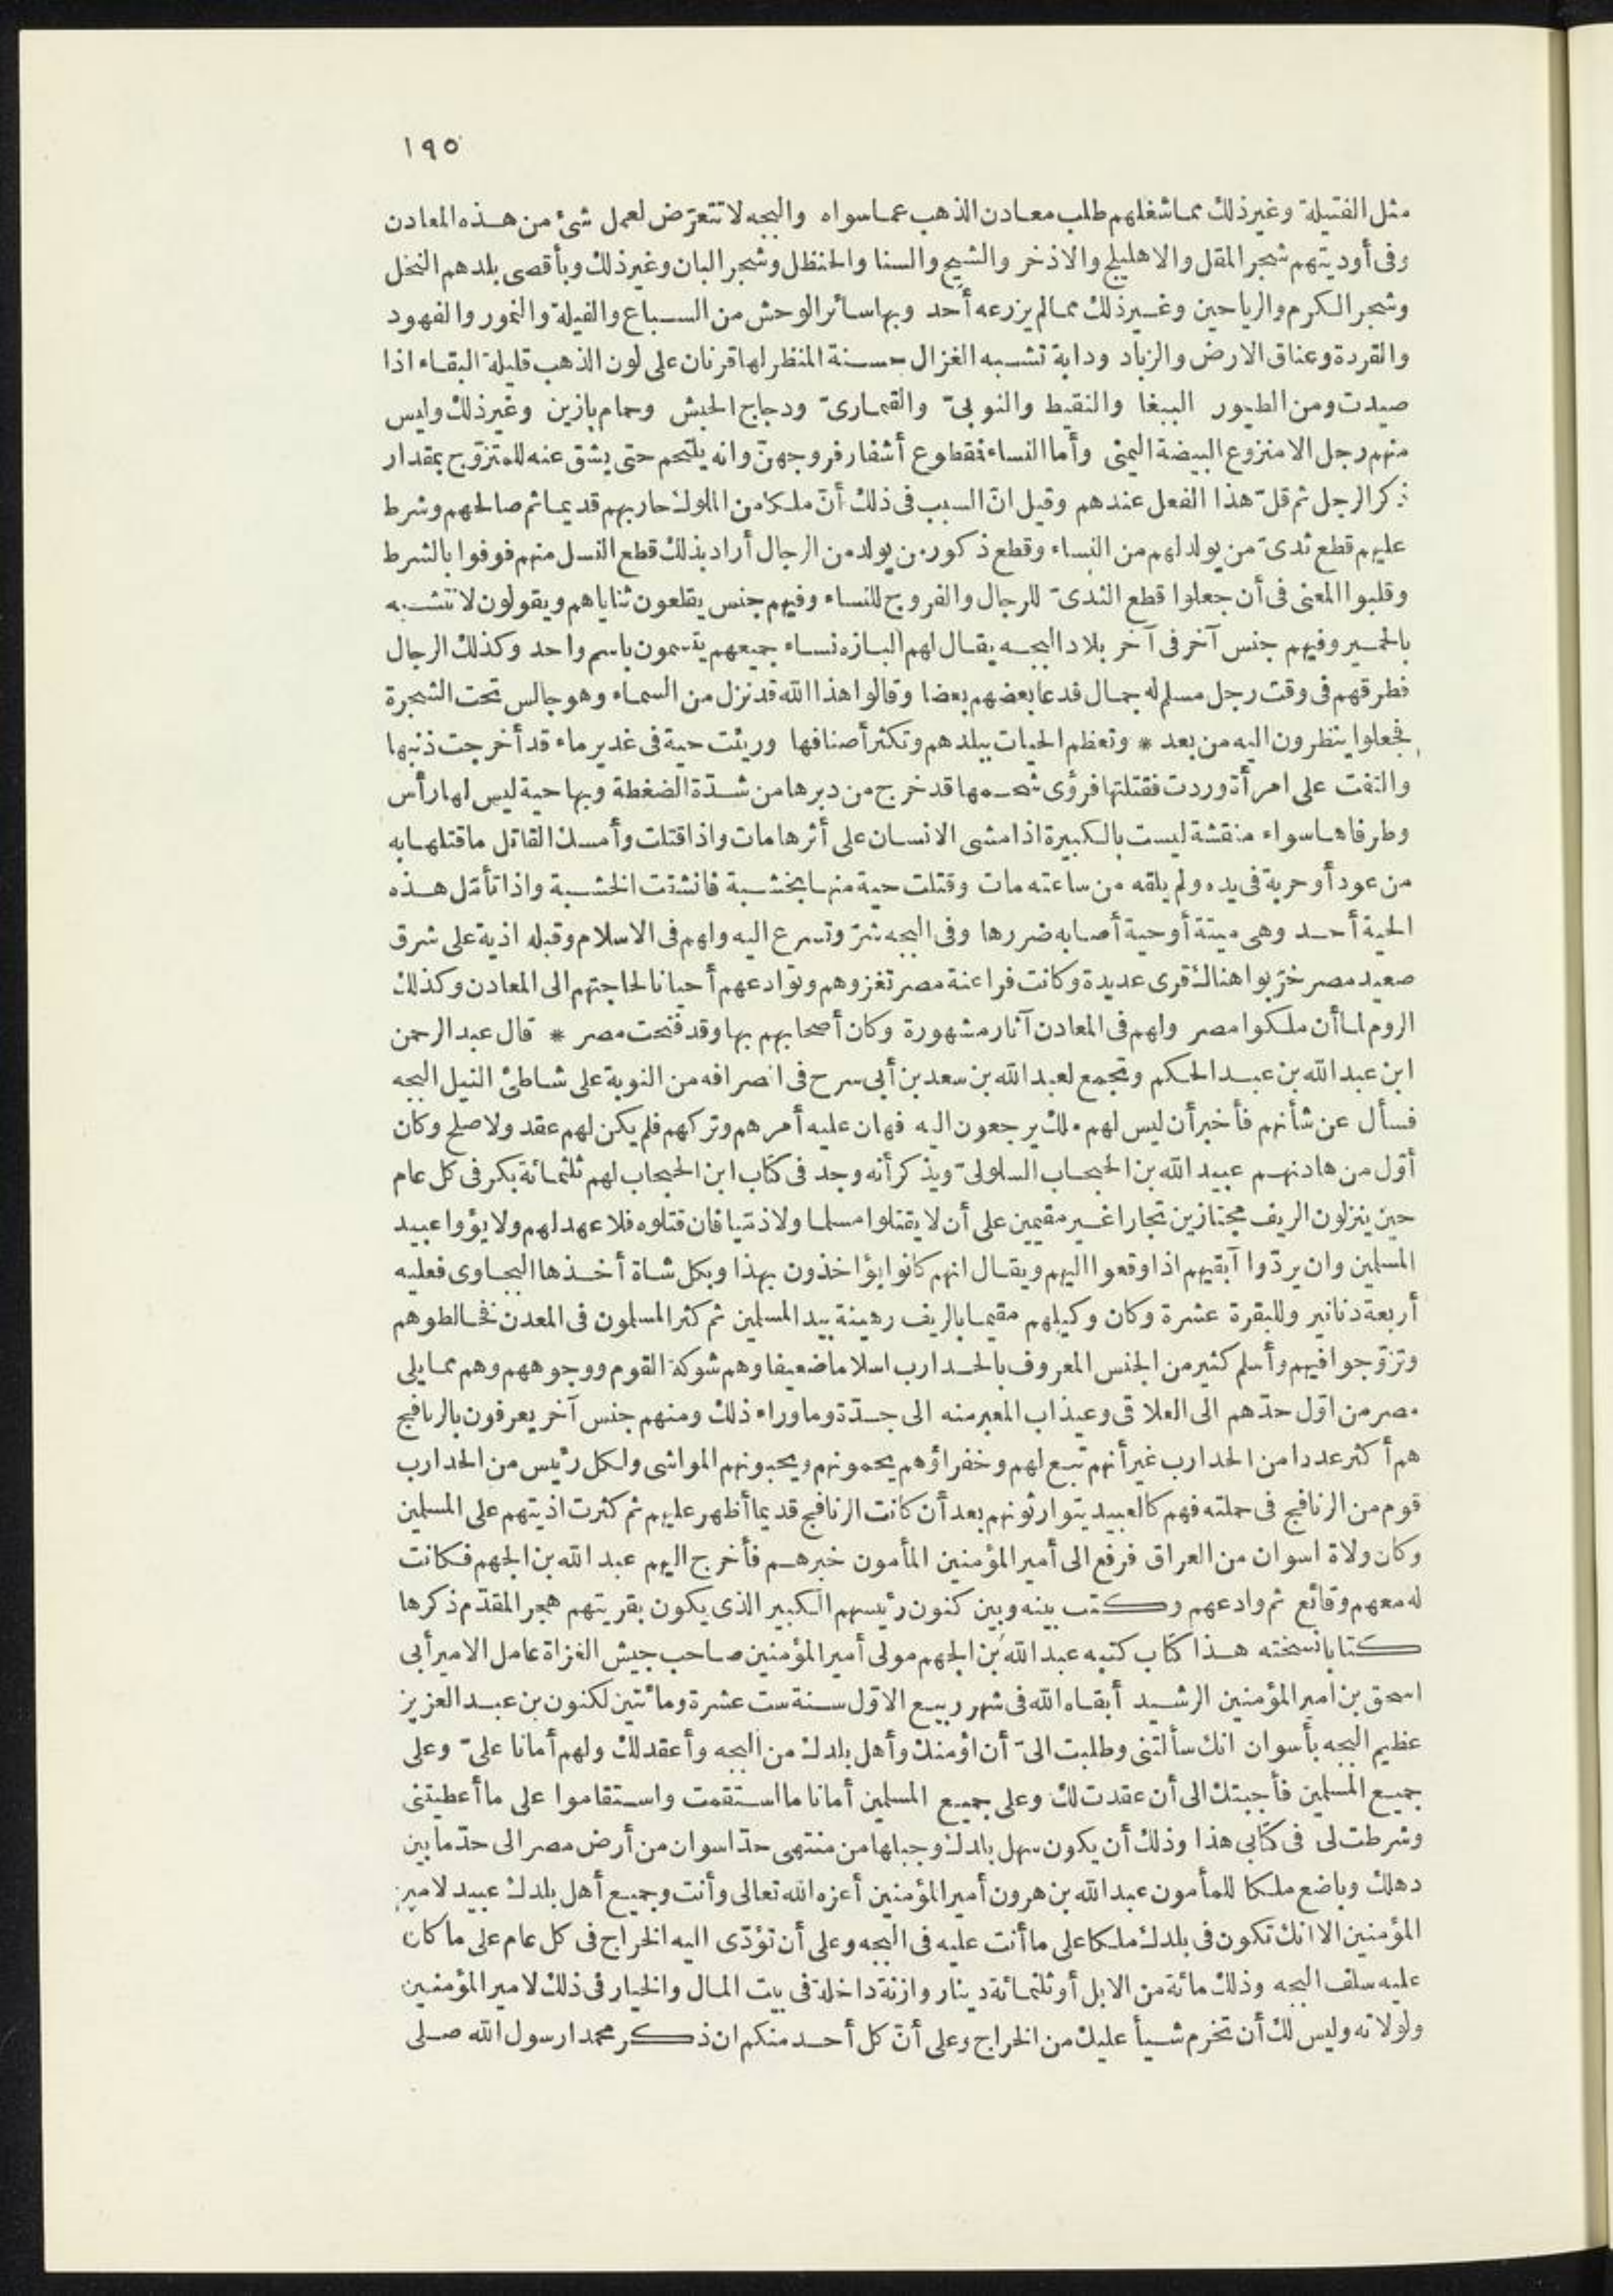 ١٩٥
مثل الفتيلة وغير ذلك مما شغلهم طلب معادن الذهب عما سواه والبجه لا تتعرّض لعمل شئ من هذه المعادن
وفى أوديتهم شجر المقل والاهليلج والاذخر والشيح والسنا والحنظل وشجر البان وغير ذلك وبأقصى بلدهم النخل
وشجر الكرم والرياحين وغير ذلك مما لم يزرعه أحد وبها سائر الوحش من السباع والفيلة والنمور والفهود
والقردة وعناق الارض والزباد ودابة تشبه الغزال حسنة المنظر لها قرنان على لون الذهب قليلة البقاء اذا
صيدت ومن الطيور الببغا والنقيط والنوبىّ والقمارىّ ودجاج الحبش وحمام بازين وغير ذلك وليس
منهم رجل الا منزوع البيضة اليمنى وأما النساء فقطوع أشفار فروجهنّ وانه يلتحم حتى يشق عنه للمتزوّج بمقدار
ذكر الرجل ثم قلّ هذا الفعل عندهم وقيل انّ السبب فى ذلك أنّ ملكا من الملوك حاربهم قديما ثم صالحهم وشرط
عليهم قطع ثدىّ من يولد لهم من النساء وقطع ذكور من يولد من الرجال أراد بذلك قطع النسل منهم فوفوا بالشرط
وقلبوا المعنى فى أن جعلوا قطع الثدىّ للرجال والفروج للنساء وفيهم جنس يقلعون ثناياهم ويقولون لا نتشبه
بالحمير وفيهم جنس آخر فى آخر بلاد البجه يقال لهم البازه نساء جميعهم يتسمون باسم واحد وكذلك الرجال
فطرقهم فى وقت رجل مسلم له جمال فدعا بعضهم بعضا وقالوا هذا الله قد نزل من السماء وهو جالس تحت الشجرة
فجعلوا ينظرون اليه من بعد * وتعظم الحيات ببلدهم وتكثر أصنافها وريئت حية فى غدير ماء قد أخرجت ذنبها
والتفت على امرأة وردت فقتلتها فرؤى شحمها قد خرج من دبرها من شدّة الضغطة وبها حية ليس لها رأس
وطرفاها سواء منقشة ليست بالكبيرة اذا مشى الانسان على أثرها مات واذا قتلت وأمسك القاتل ما قتلها به
من عود أو حربة فى يده ولم يلقه من ساعته مات وقتلت حية منها بخشبة فانشقت الخشبة واذا تأمّل هذه
الحية أحد وهى ميتة أو حية أصابه ضررها وفى البجه شرّ وتسرع اليه ولهم فى الاسلام وقبله اذية على شرق
صعيد مصر خرّبوا هنالك قرى عديدة وكانت فراعنة مصر تغزوهم وتوادعهم أحيانا لحاجتهم الى المعادن وكذلك
الروم لما أن ملكوا مصر ولهم فى المعادن آثار مشهورة وكان أصحابهم بها وقد فتحت مصر * قال عبد الرحمن
ابن عبد الله بن عبد الحكم وتجمع لعبد الله بن سعد بن أبى سرح فى انصرافه من النوبة على شاطئ النيل البجه
فسأل عن شأنهم فأخبر أن ليس لهم ملك يرجعون اليه فهان عليه أمرهم وتركهم فلم يكن لهم عقد ولا صلح وكان
أوّل من هادنهم عبيد الله بن الحبحاب السلولىّ ويذكر أنه وجد فى كتاب ابن الحبحاب لهم ثلثمائة بكر فى كل عام
حين ينزلون الريف مجتازين تجارا غير مقيمين على أن لا يقتلوا مسلما ولا ذمّيا فان قتلوه فلا عهد لهم ولا يؤوا عبيد
المسلمين وان يردّوا آبقيهم اذا وقعوا اليهم ويقال انهم كانوا يؤاخذون بهذا وبكل شاة أخذها البجاوى فعليه
أربعة دنانير وللبقرة عشرة وكان وكيلهم مقيما بالريف رهينة بيد المسلمين ثم كثر المسلمون فى المعدن فخالطوهم
وتزوّجوا فيهم وأسلم كثير من الجنس المعروف بالحدارب اسلاما ضعيفا وهم شوكة القوم ووجوههم وهم مما يلى
مصر من اوّل حدّهم الى العلاقى وعيذاب المعبر منه الى جدّة وما وراء ذلك ومنهم جنس آخر يعرفون بالرنافج
هم أكثر عددا من الحدارب غير أنهم تبع لهم وخفراؤهم يحمونهم ويحبونهم المواشى ولكل رئيس من الحدارب
قوم من الرنافج فى حملته فهم كالعبيد يتوارثونهم بعد أن كانت الرنافج قديما أظهر عليهم ثم كثرت اذيتهم على المسلمين
وكان ولاة اسوان من العراق فرفع الى أمير المؤمنين المأمون خبرهم فأخرج اليهم عبد الله بن الجهم فكانت
له معهم وقائع ثم وادعهم وكتب بينه وبين كنون رئيسهم الكبير الذى يكون بقريتهم هجر المقدّم ذكرها
كتابا نسخته هذا كتاب كتبه عبد الله بن الجهم مولى أمير المؤمنين صاحب جيش الغزاة عامل الامير أبى
اسحق بن امير المؤمنين الرشيد أبقاه الله فى شهر ربيع الاوّل سنة ست عشرة ومائتين لكنون بن عبد العزيز
عظيم البجه بأسوان انك سألتنى وطلبت الىّ أن اؤمنك وأهل بلدك من البجه وأعقد لك ولهم أمانا علىّ وعلى
جميع المسلمين فأجبتك الى أن عقدت لك وعلى جميع المسلمين أمانا ما استقمت واستقاموا على ما أعطيتنى
وشرطت لى فى كتابى هذا وذلك أن يكون سهل بلدك وجبلها من منتهى حدّ اسوان من أرض مصر الى حدّ ما بين
دهلك وباضع ملكا للمأمون عبد الله بن هرون أمير المؤمنين أعزه الله تعالى وأنت وجميع أهل بلدك عبيد لامير
المؤمنين الا انك تكون فى بلدك ملكا على ما أنت عليه فى البجه وعلى أن تؤدّى اليه الخراج فى كل عام على ما كان
عليه سلف البجه وذلك مائة من الابل أو ثلثمائة دينار وازنة داخلة فى بيت المال والخيار فى ذلك لامير المؤمنين
ولولاته وليس لك أن تخرم شيأ عليك من الخراج وعلى أنّ كل أحد منكم ان ذكر محمدا رسول الله صلى